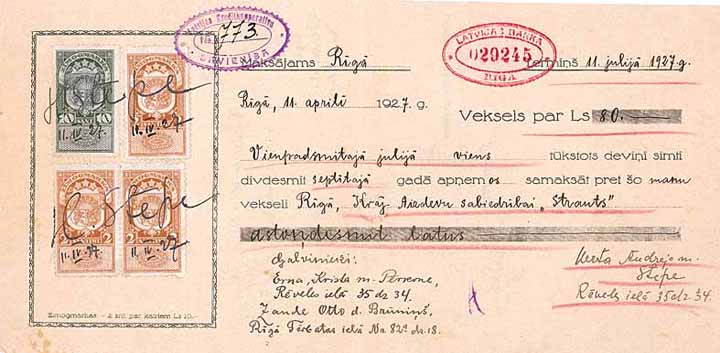 Latvijas Kreditkooperativu
No 773.
SAVIENIBA
LATVIJAS BANKA
029245
RIGA
Maksājams Rīgā
Termiņš 11. julijā 1927. g.
Rīgā, 11. aprilī 1927. g.
Veksels par Ls 80.—
Vienpadsmitajā julijā viens tūkstots deviņi simti
divdesmit septītajā gadā apņemos samaksāt pret šo manu
vekseli Rīgā, Krāj Aizdevu sabiedrībai „Strauts”
astoņdesmit latus
Galvinieki:
Erna, Krista m.
Rēveles ielā 35 dz 34.
Zande Otto d. Brūniņš,
Rīgā Tērbatas ielā No. 82a dz. 18.
Herta Andreja m.
Stepe
Rēveles ielā 35 dz. 34.
H Stepe
11.IV.27. 11.IV.27.
H Stepe
11.IV.27. 11.IV.27.
10 10
2 2
2 2
Zīmogmarkas - 2 snt par katriem Ls 10.—